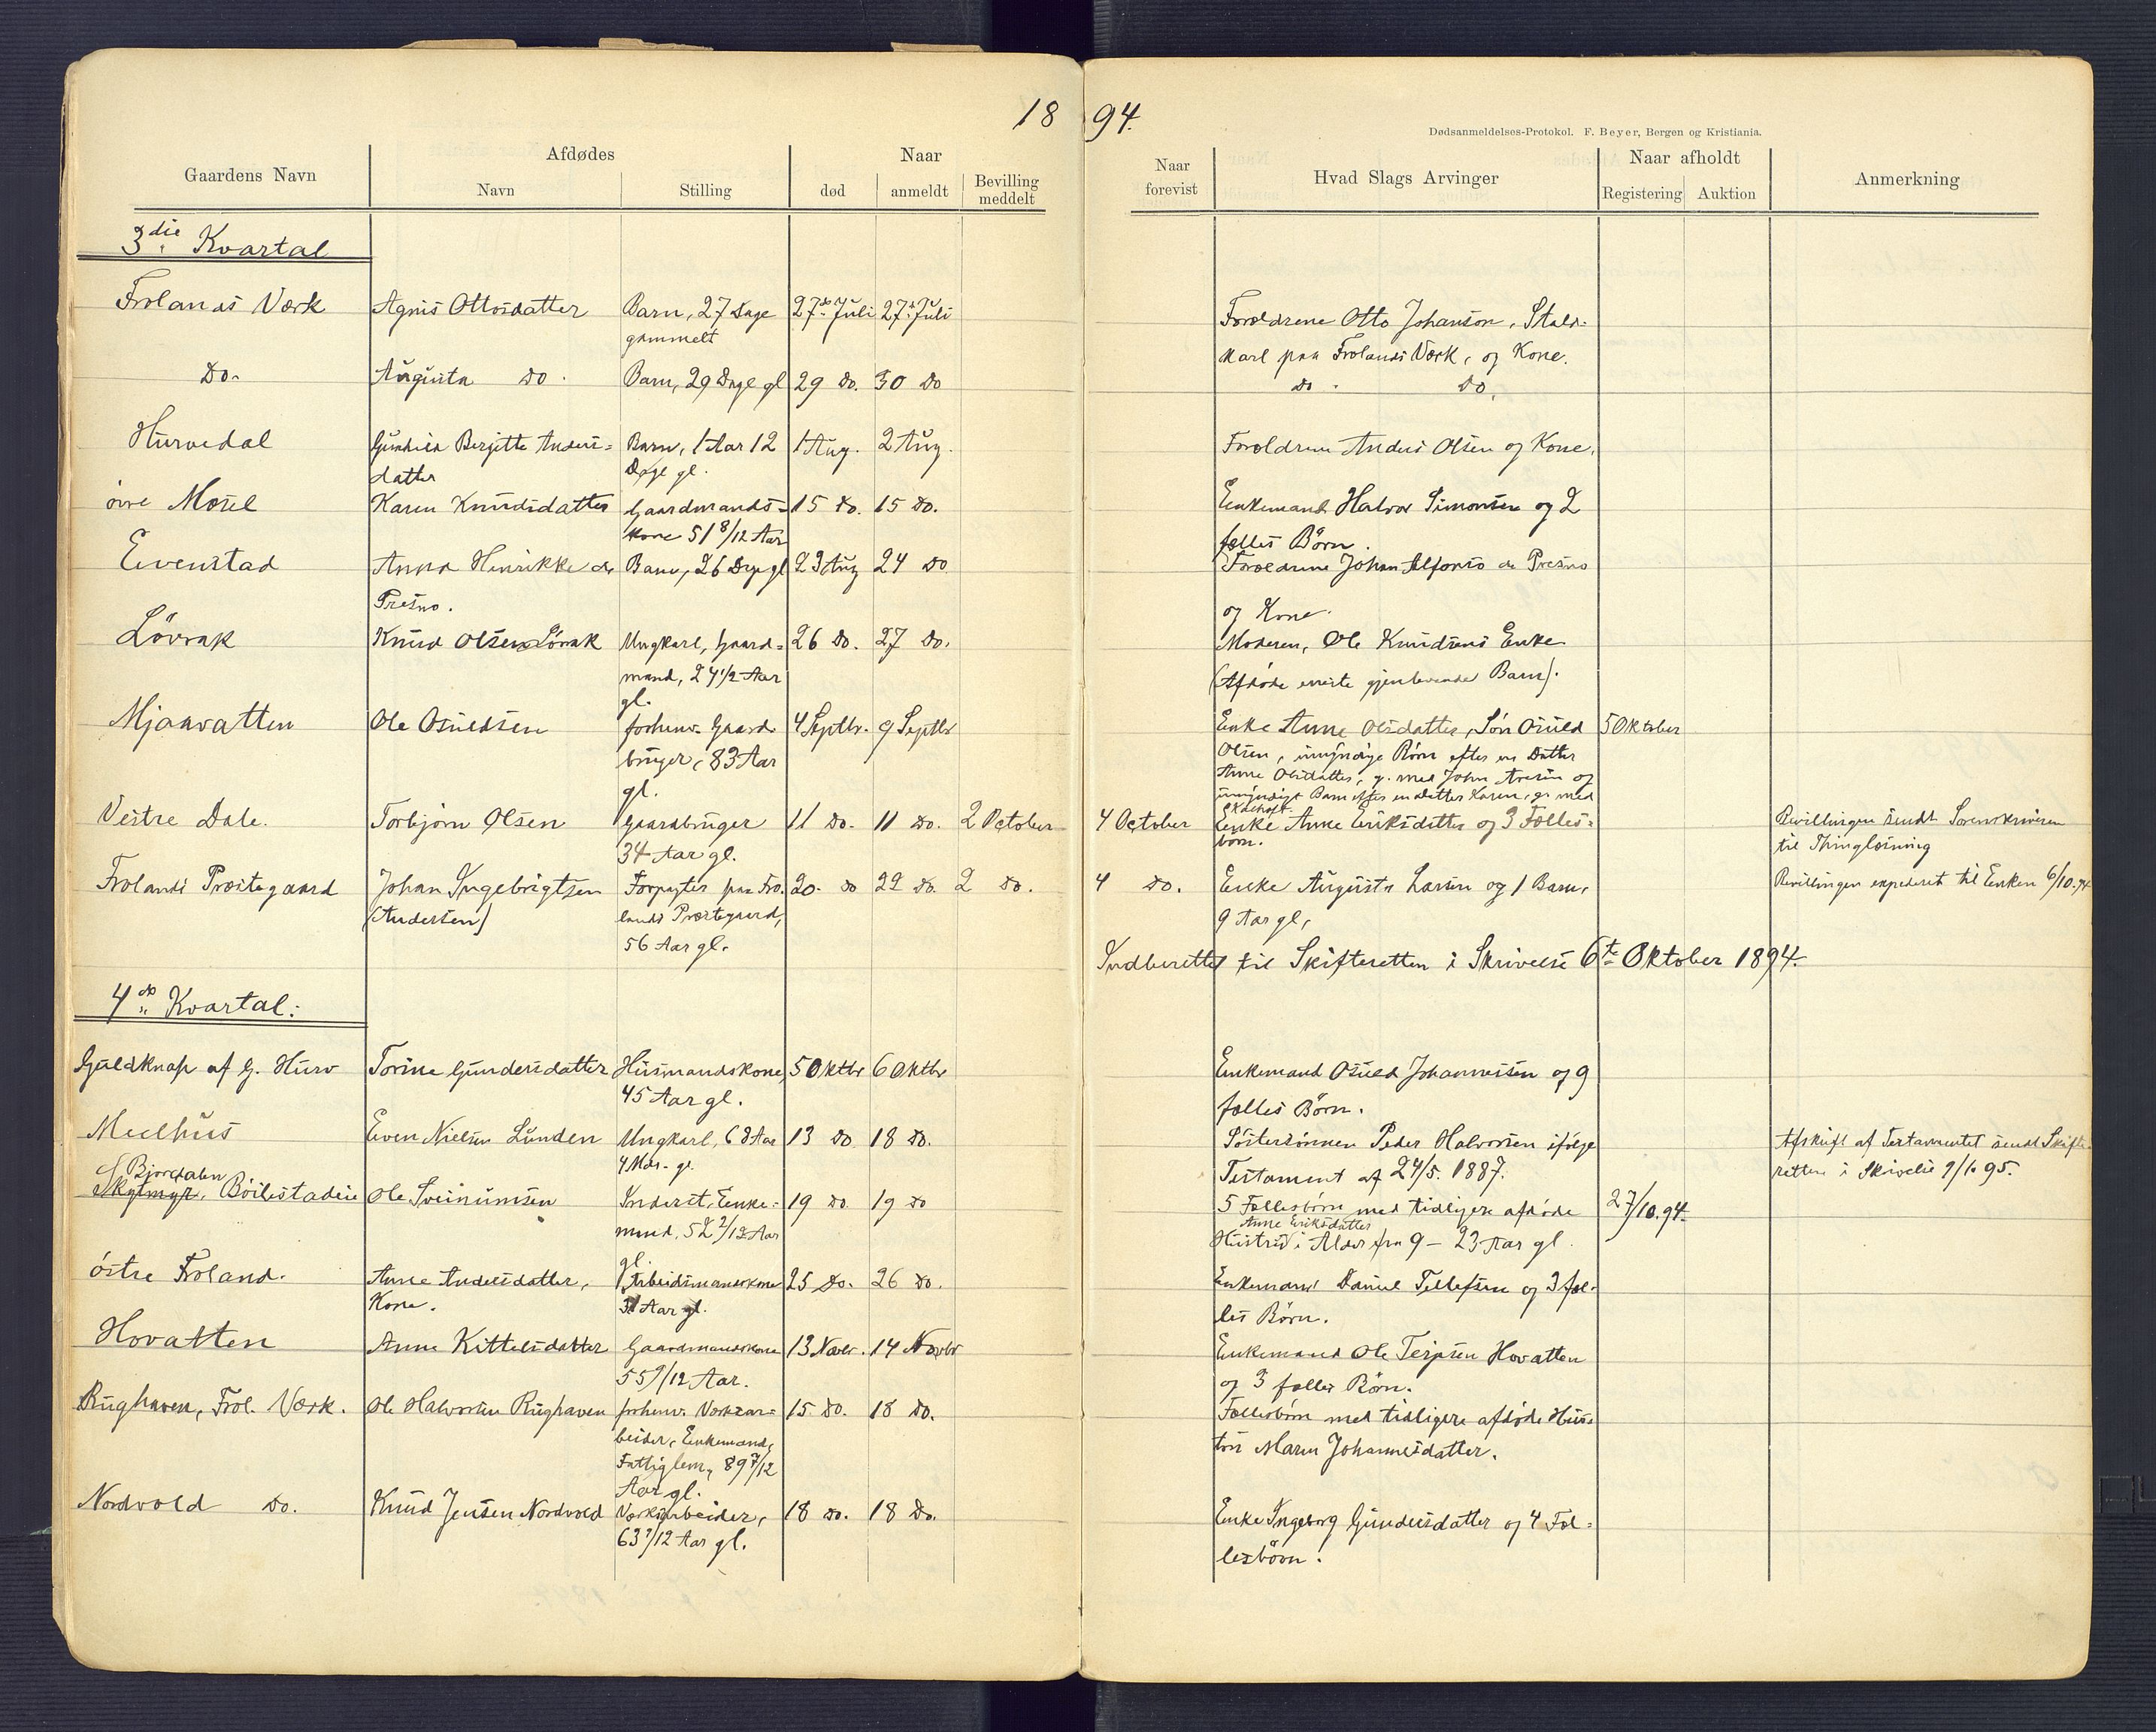 18 94.
Dødsanmeldelses-Protokol. F. Beyer, Bergen og Kristiania.
Gaardens Navn
Afdødes
Navn
Stilling
Naar
død
anmeldt
Bevilling meddelt
Naar forevist
Hvad Slags Arvinger
Naar afholdt
Registering
Auktion
Anmerkning
3die Kvartal
Frolands Værk Agnes Ottosdatter Barn, 27 Dage 27de Juli 27de Juli Forældrene Otto Johanson, Stald-
gammelt karl paa Frolands Værk, og Kone.
Do. Augusta Do. Barn, 29 Dage gl 29 Do. 30 Do Do. Do.
Hurvedal Gunhild Bergitte Anders- Barn, 1 Aar 12 1 Aug. 2 Aug. Forældrene Anders Olsen og Kone.
datter Dage gl.
øvre Mosel Karen Knudsdatter Gaardmands- 15 Do. 15 Do. Enkemand Halvor Simonsen og 2
kone 51 8/12 Aar fælles Børn.
Evenstad Anna Henrikke de Barn, 26 Dage gl 23 Aug 24 Do Forældrene Johan Alfonso de Presno
Presno. og Kone.
Løvrak Knud Olsen Løvrak Ungkarl, Gaard- 26 Do. 27 Do. Moderen, Ole Knudsens Enke
mand, 24 1/2 Aar (Afdøde eneste gjenlevende Barn).
gl.
Mjaavatten Ole Osuldsen forhenv. Gaard- 4 Septbr. 9 Septbr Enke Anne Olsdatter, Søn Osuld 5 Oktober
bruger, 83 Aar Olsen, umyndige Børn efter en Datter
gl. Anne Olsdatter, g. med John
umyndigt Barn efter en Datter Karen, g. med
Vestre Dale. Torbjørn Olsen Gaardbruger 11 Do. 11 Do. 2 October 4 October Enke Anne Eriksdatter og 3 Fælles- Bevillingen sendt Sorenskriveren
34 Aar gl. børn. til Thinglæsning
Frolands Præstegaard Johan Ingebrigtsen Forpagter paa Fro- 20. Do 22 Do. 2 Do. 4 Do. Enke Augusta Larsen og 1 Barn, Bevillingen expederet til Enken 6/10.94
(Andersen) lands Præstegaard, 9 Aar gl.
56 Aar gl.
Indberettet til Skifteretten i Skrivelse 6te Oktober 1894.
4de Kvartal:
Guldknap af G. Hurv Torine Gundersdatter Husmandskone, 5 Oktbr 6 Oktbr Enkemand Osuld Johannesen og 9
45 Aar gl. fælles Børn.
Meelhus Even Nielsen Lunden Ungkarl, 68 Aar 13 Do 18 Do. Søstersønnen Peder Halvorsen ifølge Afskrift af Testamentet sendt Skifte-
4 Mdr. gl. Testament af 24/5. 1887. retten i Skrivelse
Bjordalen
Bøilestadeie Ole Sveinunsen Inderst, Enke- 19 Do. 19 Do 5 Fællesbørn med tidligere afdøde 27/10.94.
mand, 52 2/12 Aar Anne Eriksdatter
gl. Hustru i Alder fra 9 – 23 Aar gl.
østre Froland. Anne Andersdatter, Arbeidsmandskone 25 Do. 26 Do. Enkemand Daniel Tellefsen og 3 fæl-
Kone. Aar gl. les Børn.
Hovatten Anne Kittelsdatter Gaardmandskone 13 Novbr. 14 Novbr Enkemand Ole Terjesen Hovatten
Aar. og 3 fælles Børn.
Rughaven, Frol. Værk. Ole Halvorsen Rughaven forhenv. Værksar- 15 Do. 18 Do. Fællesbørn med tidligere afdøde Hus-
beider, Enkemand, tru Maren Johannesdatter.
Fattiglem, 89 7/12
Aar gl.
Nordvold Do. Knud Jensen Nordvold Værksarbeider, 18 Do. 18 Do. Enke Ingeborg Gundersdatter og 4 Fæl-
Aar gl. lesbørn.